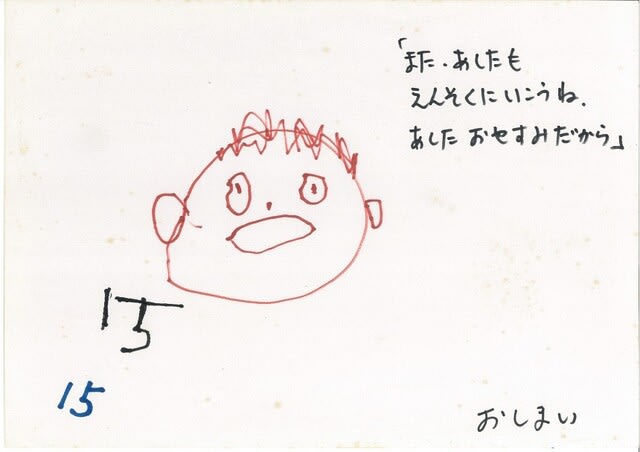 「また、あしたも
えんそくにいこうね。
あした おやすみだから」
15
15
おしまい